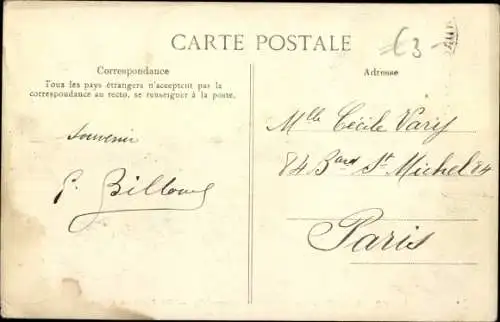 CARTE POSTALE
Correspondance
Tous les pays étrangers n'acceptent pas la
correspondance au recto, se renseigner à la poste.
Souvenir
Adresse
Mlle Cécile
84 Bard St Michel 84
Paris